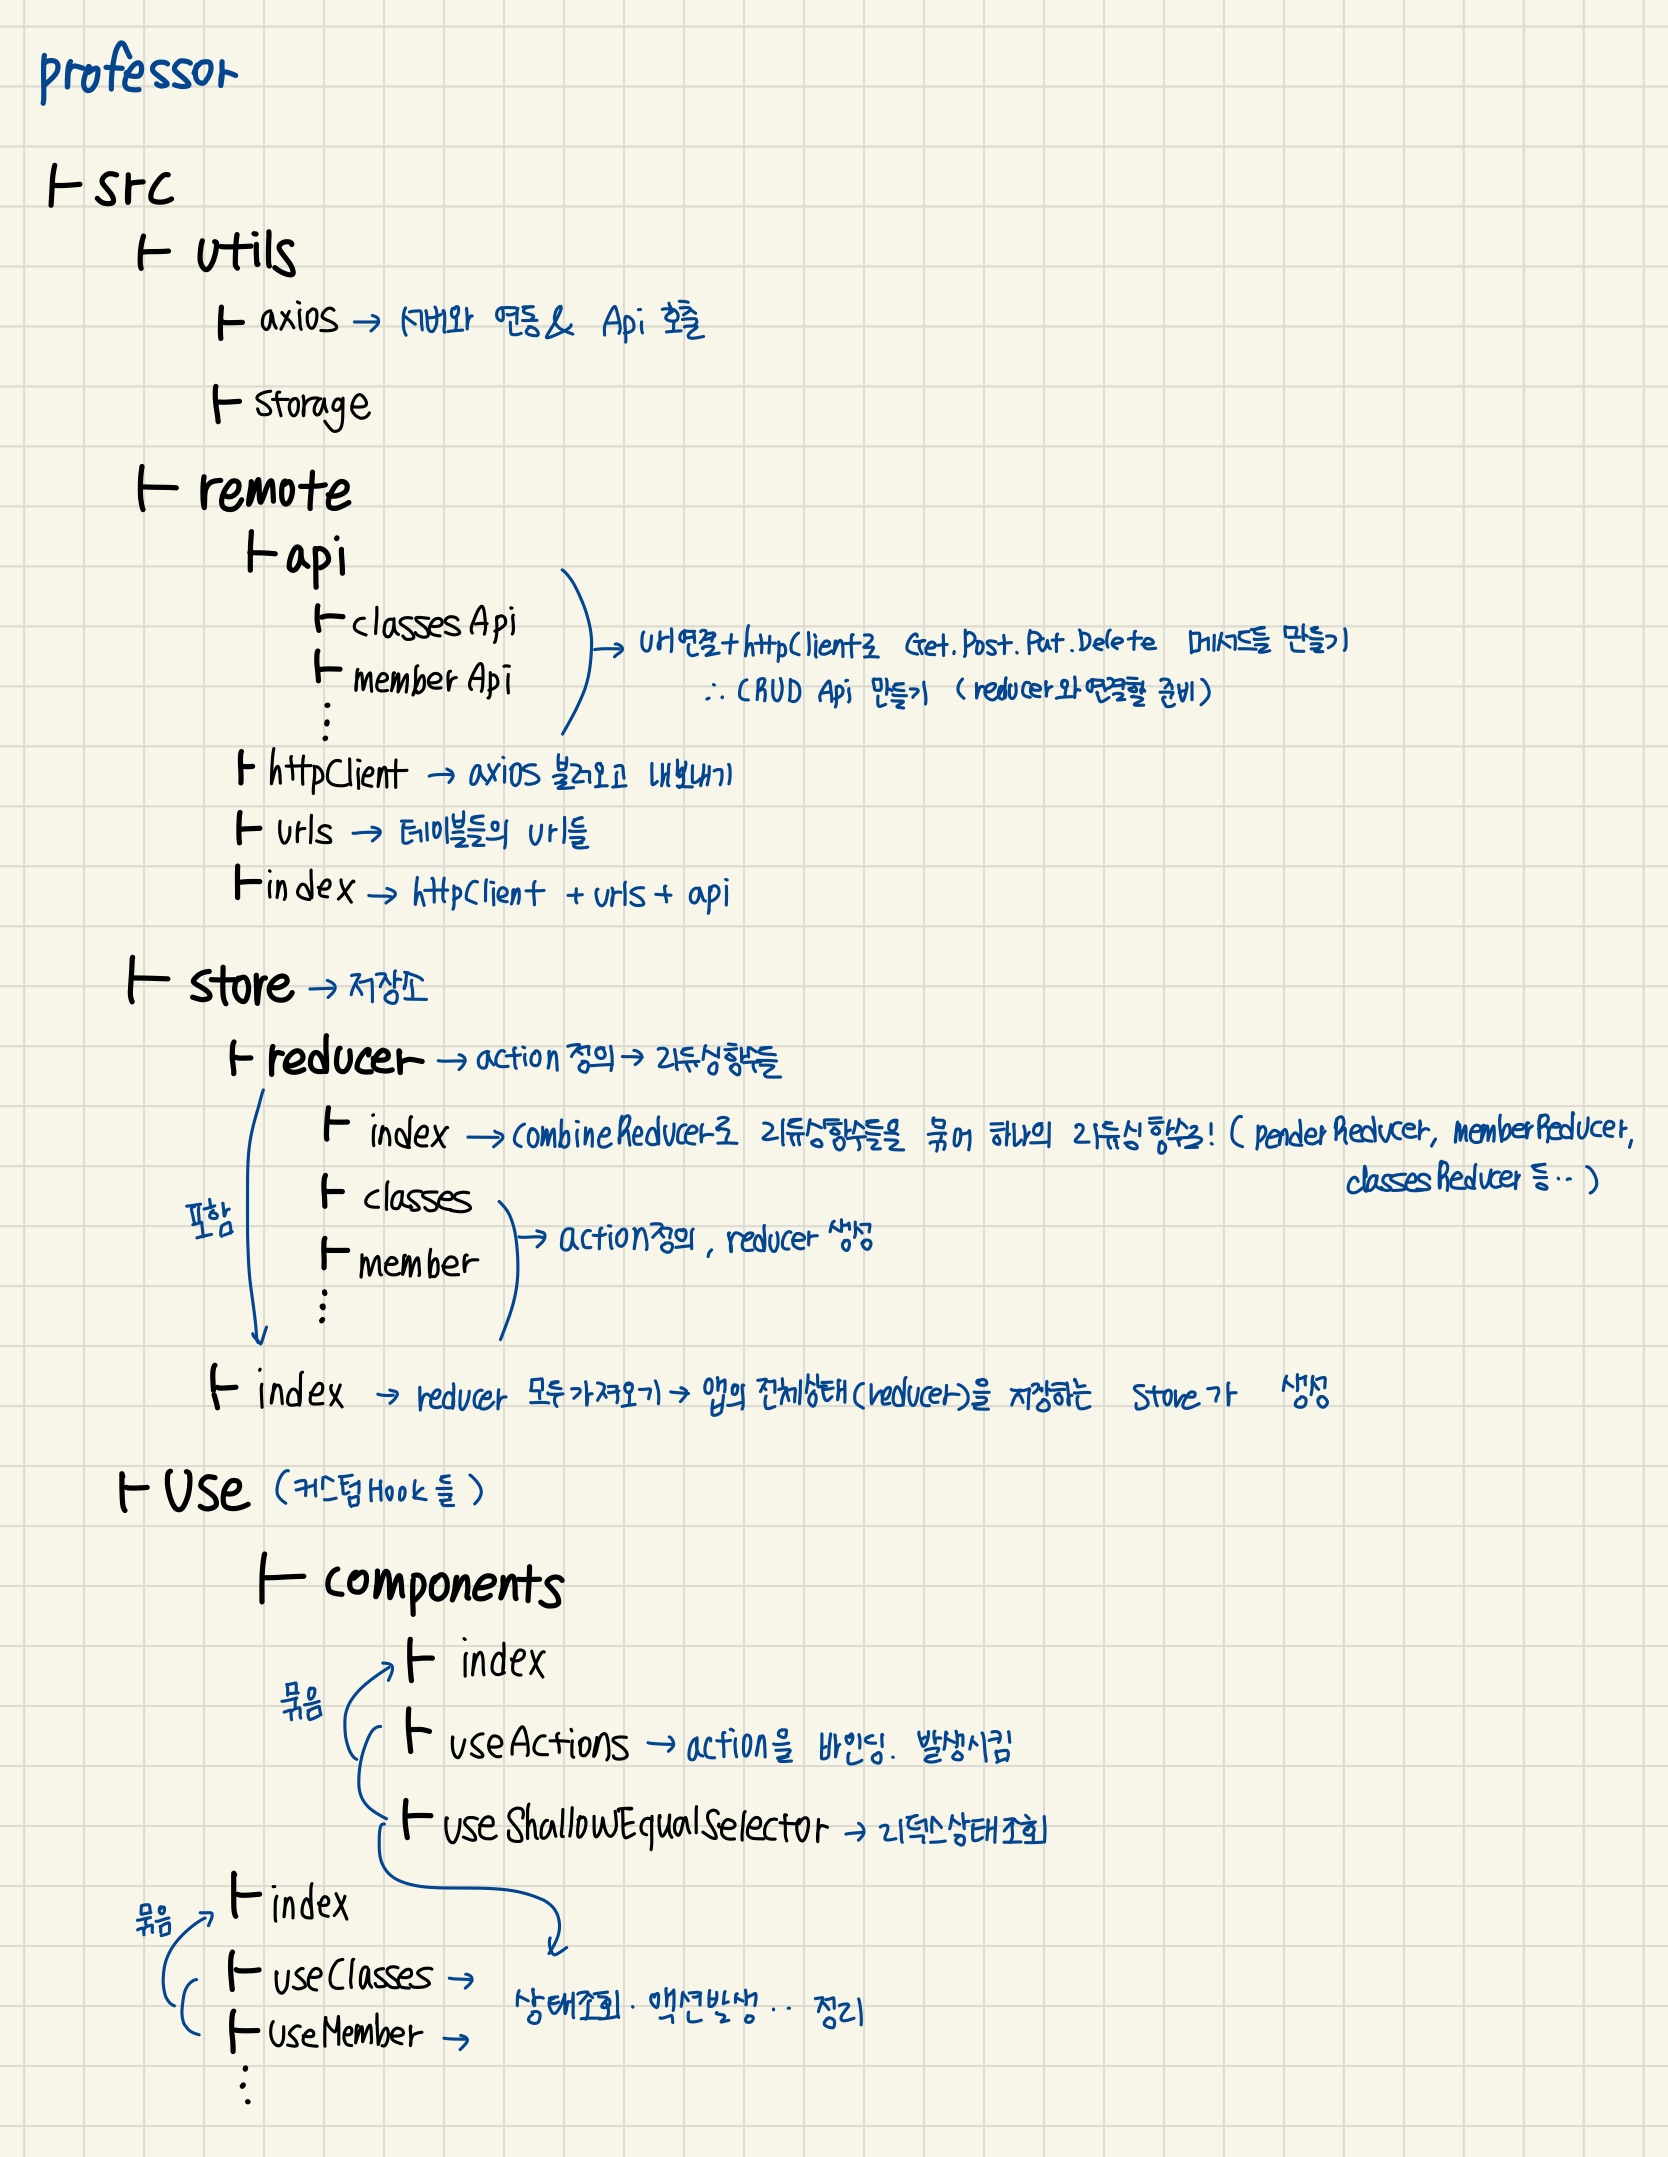 professor
├ src
├ utils
├ axios → 서버와 연동 & Api 호출
├ storage
├ remote
├ api
├ classesApi
├ memberApi
⋮
→ url연결+httpClient로 Get.Post.Put.Delete 메서드들 만들기
∴ CRUD Api 만들기 (reducer와 연결할 준비)
├ httpClient → axios 불러오고 내보내기
├ urls → 테이블들의 url들
├ index → httpClient + urls + api
├ store → 저장소
├ reducer → action 정의 → 리듀싱함수들
├ index → combineReducer로 리듀싱함수들을 묶어 하나의 리듀싱 함수로! (penderReducer, memberReducer,
classesReducer 등··)
├ classes
포함
→ action정의, reducer 생성
├ member
⋮
├ index → reducer 모두 가져오기 → 앱의 전체상태(reducer)을 저장하는 Store가 생성
├ Use (커스텀Hook들)
├ components
├ index
묶음
├ useActions → action을 바인딩. 발생시킴
├ useShallowEqualSelector → 리덕스상태조회
├ index
묶음
├ useClasses →
상태조회·액션발생·· 정리
├ useMember →
⋮